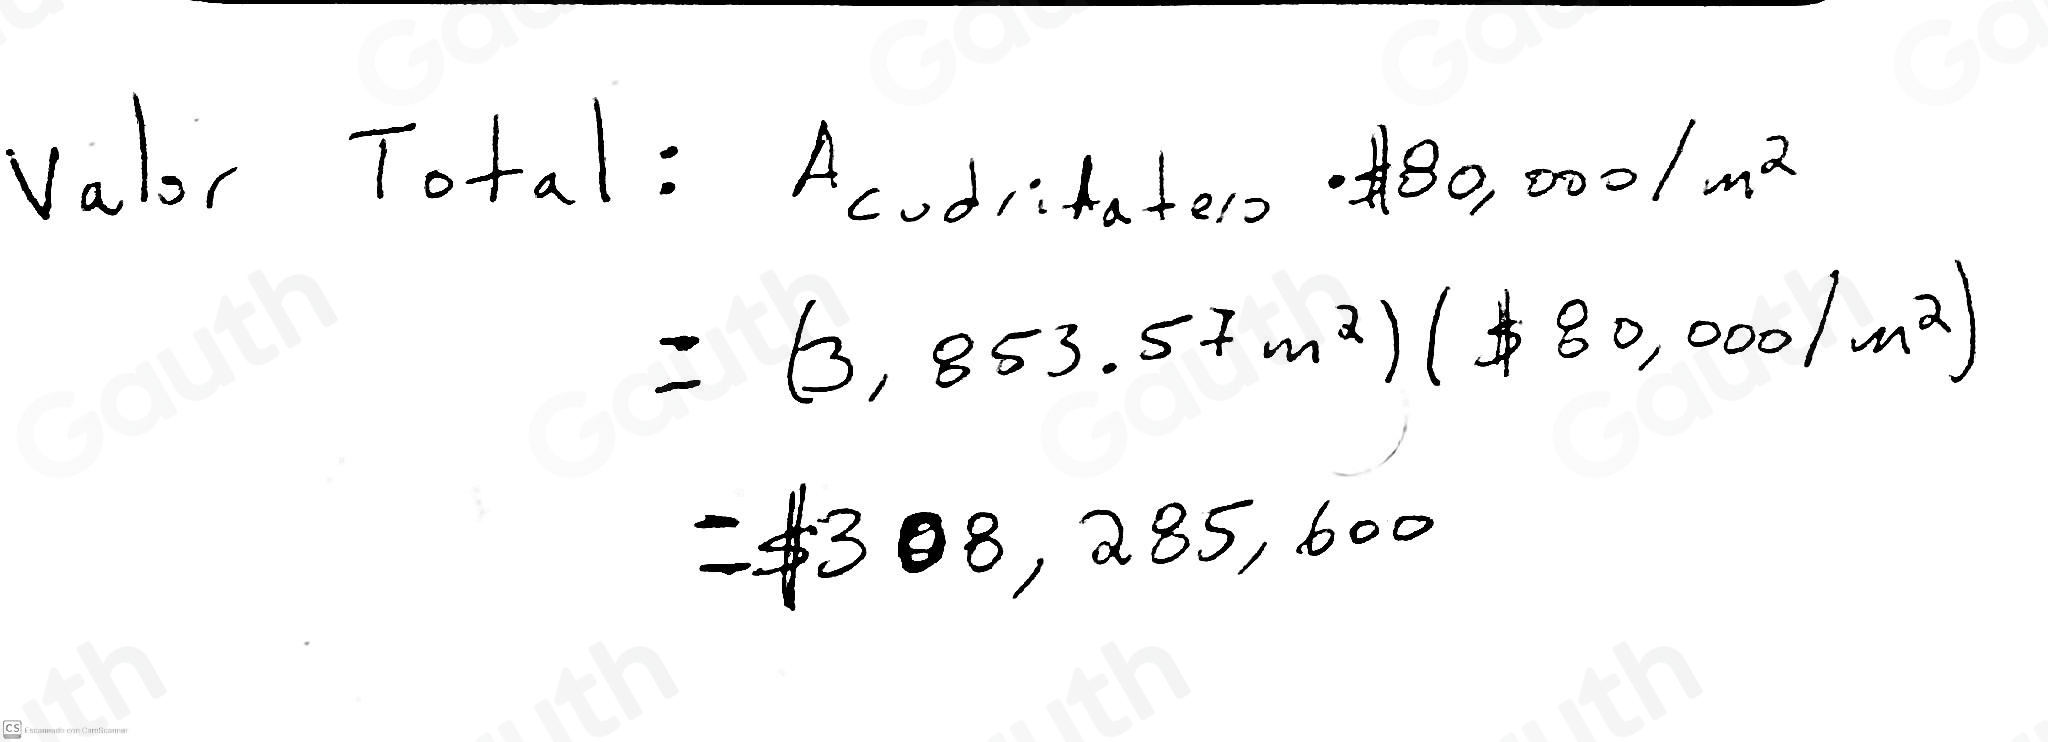 Valor Total: A cudrilatero · $80,000/m²
= (3,853.57 m²)($80,000/m²)
= $308,285,600
CS Escaneado con CamScanner